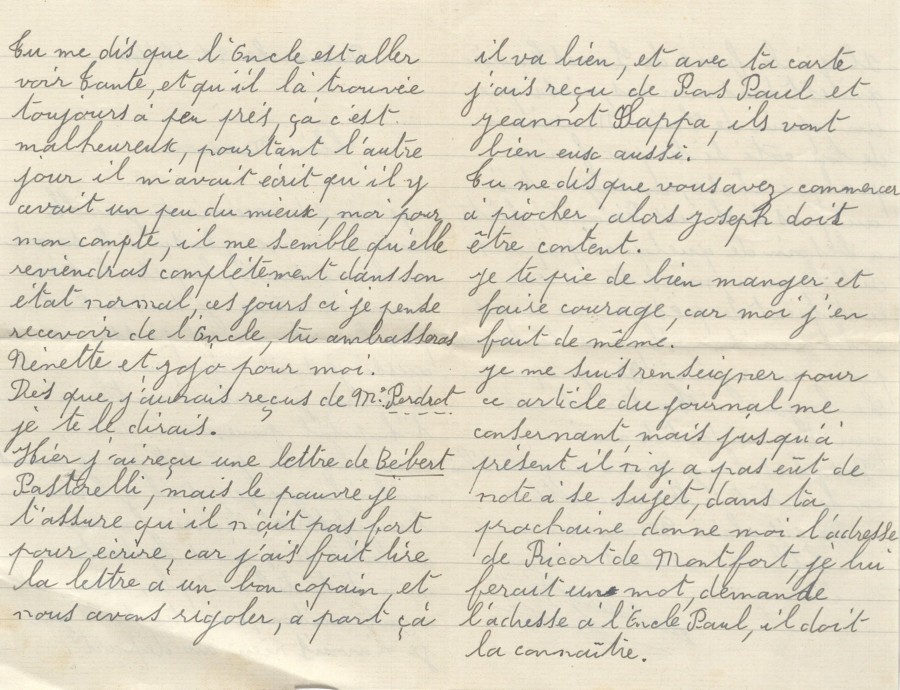 Tu me dis que l'Oncle est aller
voir Tante, et qu'il là trouvée
toujours à peu prés, ça c'est
malheureux, pourtant l'autre
jour il m'avait écrit qu'il y
avait un peu du mieux, moi pour
mon compte, il me semble qu'elle
reviendras complétement dans son
état normal, ces jours ci je pense
recevoir de l'Oncle, tu ambrasseras
Nénette et jojo pour moi.
Dés que, j'aurais reçus de Mr. Perdrot
je te le dirais.
Hier j'ai reçu une lettre de Bébert
Pastorelli, mais le pauvre je
t'assure qu'il n'ait pas fort
pour écrire, car j'ais fait lire
la lettre à un bon copain, et
nous avons rigoler, à part çà
il va bien, et avec ta carte
j'ais reçu de Paul et
Jeannot Dappa, ils vont
bien eux aussi.
Tu me dis que vous avez commencer
à piocher, alors Joseph doit
être content.
Je te prie de bien manger et
faire courage, car moi j'en
fait de même.
Je me suis renseigner pour
ce article du journal me
consernant, mais jusqu'à
présent il n'y a pas eût de
note à se sujet, dans ta
prochaine donne moi l'adresse
de Ricort de Montfort, je lui
ferait un mot, demande
l'adresse à l'Oncle Paul, il doit
la connaître.